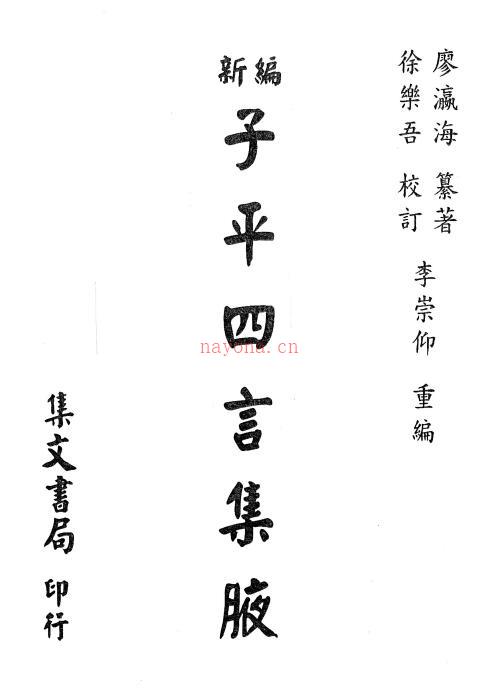 廖瀛海 纂著
徐樂吾 校訂
李崇仰 重編
新編
子平四言集腋
集文書局 印行
nayona.cn